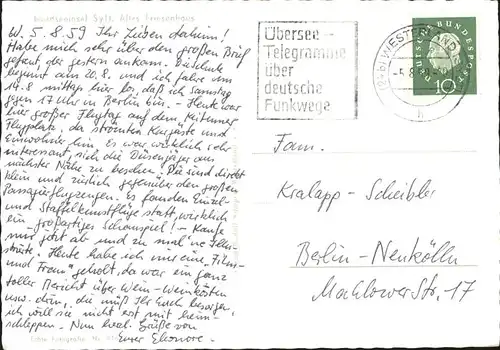 Nordseeinsel Sylt, Altes Friesenhaus
W. 5.8.59 Ihr Lieben daheim!
Habe mich sehr über den großen Brief
gefreut, der gestern ankam. Die Schule
beginnt am 20.8. und ich fahre am
14.8 mittags hier los, daß ich Samstag
gegen 17 Uhr in Berlin bin. - Heute war
hier großer Flugtag auf dem
Flugplatz, da strömten Kurgäste und
Einwohner hin. Es war wirklich sehr
interessant, sich die Düsenjäger aus
nächster Nähe zu besehen. Die sind direkt
klein und zierlich gegenüber den großen
Passagierflugzeugen. Es fanden Einzel-
und Staffelkunstflüge statt, wirklich
ein großartiges Schauspiel! - Kaufe
mir jetzt ab und zu mal 'ne
Heute habe ich mir eine „Film
und Frau" geholt, da war ein ganz
toller Bericht über Wein - Weinkosten
usw. drin, die müßt Ihr Euch besorgen,
ich will sie nicht erst mit heim-
schleppen. Nun herzl. Grüße von
Eurer Eleonore.
Echte Fotografie
Übersee-
Telegramme
über
deutsche
Funkwege
(24b) WESTERLAND
-5.8.59
h
DEUTSCHE BUNDESPOST
10
Fam.
Kralapp-Scheibler
Berlin-Neukölln
Mahlower Str. 17